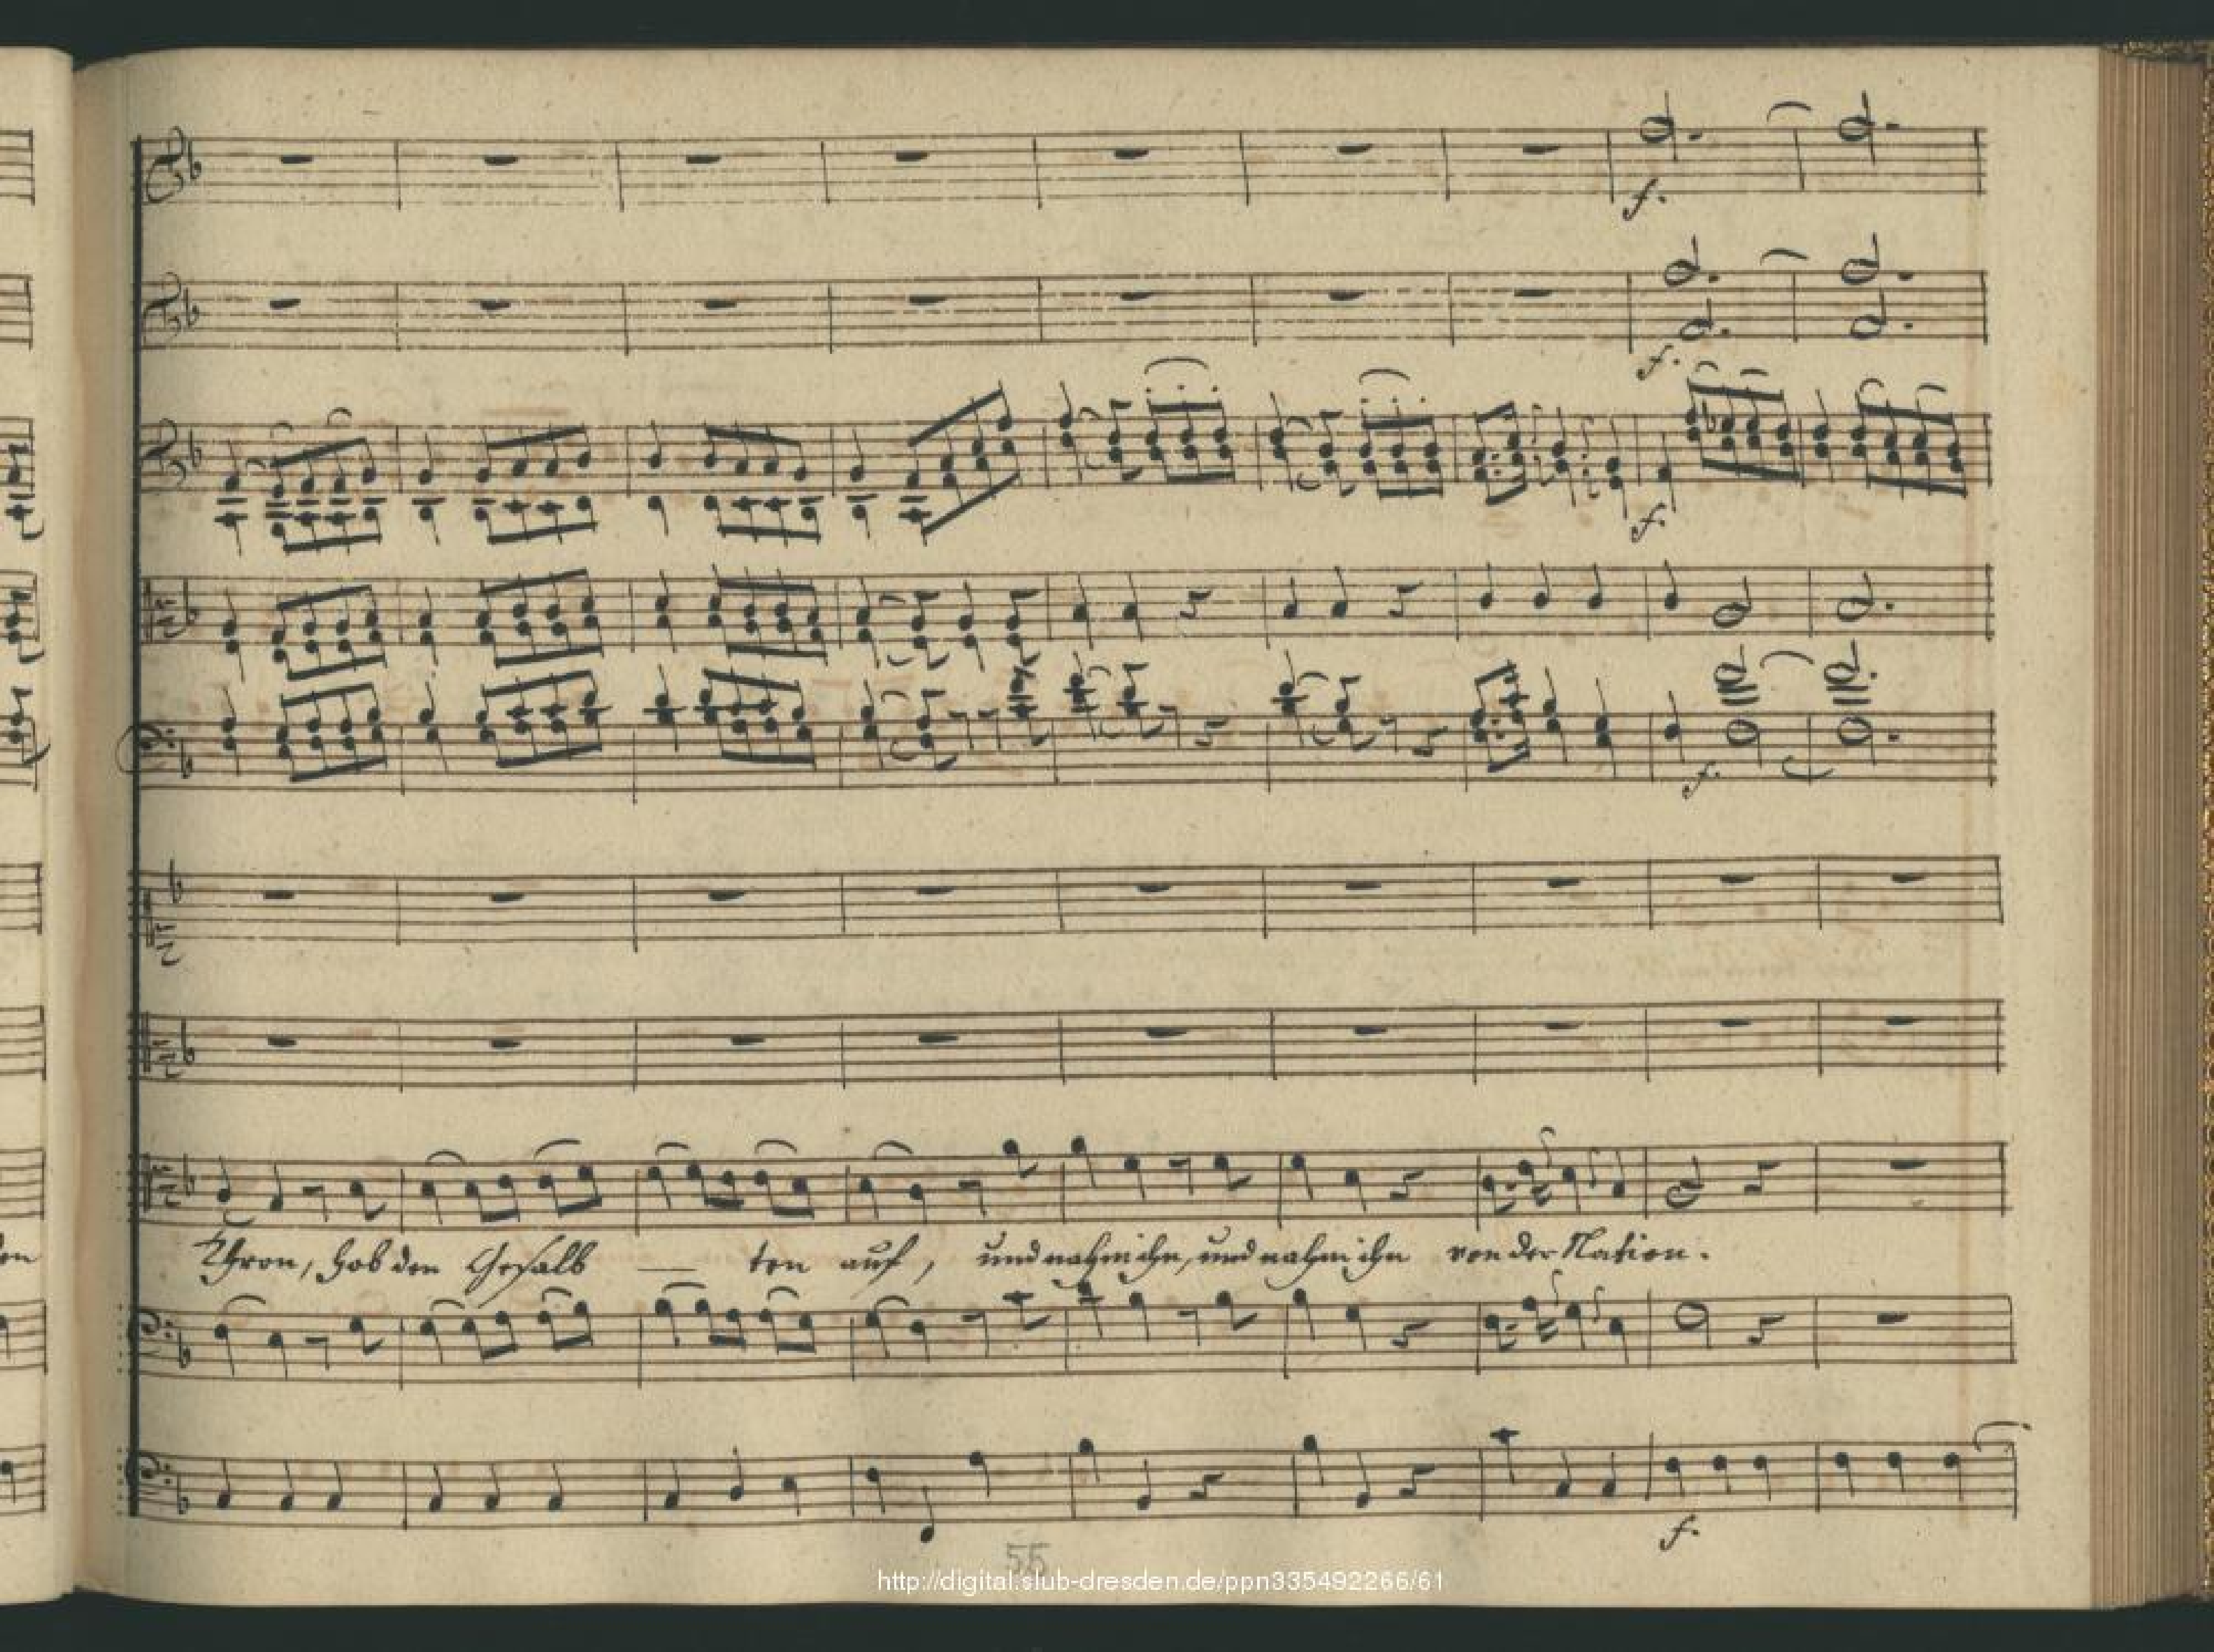 f.
f.
f.
f.
Thron, hob den Gesalb — ten auf, und nahm ihn, und nahm ihn von der Nation.
f.
55
http://digital.slub-dresden.de/ppn335492266/61